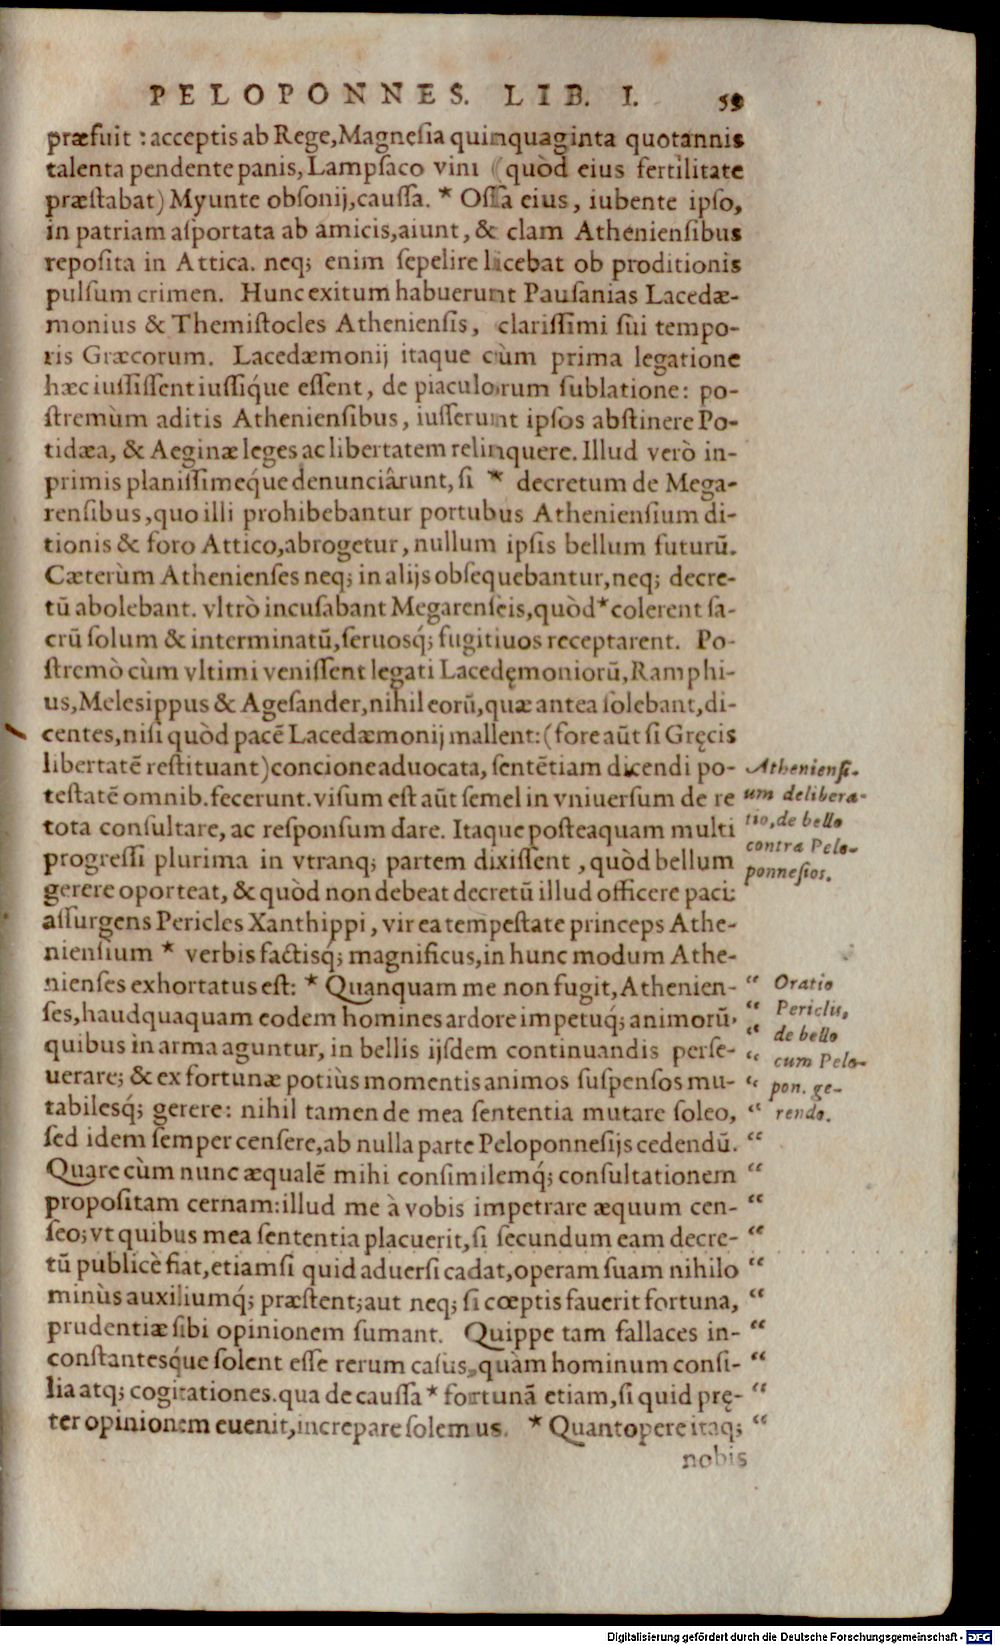 PELOPONNES. LIB. I. 59
præfuit : acceptis ab Rege, Magneſia quinquaginta quotannis
talenta pendente panis, Lampſaco vini (quòd eius fertilitate
præſtabat) Myunte obſonij, cauſſa. * Oſſa eius, iubente ipſo,
in patriam aſportata ab amicis, aiunt, & clam Athenienſibus
repoſita in Attica. neq; enim ſepelire licebat ob proditionis
pulſum crimen. Hunc exitum habuerunt Pauſanias Lacedæ-
monius & Themiſtocles Athenienſis, clariſſimi ſui tempo-
ris Græcorum. Lacedæmonij itaque cùm prima legatione
hæc iuſſiſſent iuſſiq́ue eſſent, de piaculorum ſublatione: po-
ſtremùm aditis Athenienſibus, iuſſerunt ipſos abſtinere Po-
tidæa, & Aeginæ leges ac libertatem relinquere. Illud verò in-
primis planiſſimeq́ue denunciârunt, ſi * decretum de Mega-
renſibus, quo illi prohibebantur portubus Athenienſium di-
tionis & foro Attico, abrogetur, nullum ipſis bellum futurũ.
Cæterùm Athenienſes neq; in alijs obſequebantur, neq; decre-
tũ abolebant. vltrò incuſabant Megarenſeis, quòd * colerent ſa-
crũ ſolum & interminatũ, ſeruosq́; fugitiuos receptarent. Po-
ſtremò cùm vltimi veniſſent legati Lacedęmoniorũ, Ramphi-
us, Meleſippus & Ageſander, nihil eorũ, quæ antea ſolebant, di-
centes, niſi quòd pacẽ Lacedæmonij mallent: (fore aũt ſi Gręcis
libertatẽ reſtituant) concione aduocata, ſentẽtiam dicendi po-
teſtatẽ omnib. fecerunt. viſum eſt aũt ſemel in vniuerſum de re
tota conſultare, ac reſponſum dare. Itaque poſteaquam multi
progreſſi plurima in vtranq; partem dixiſſent, quòd bellum
gerere oporteat, & quòd non debeat decretũ illud officere paci:
aſſurgens Pericles Xanthippi, vir ea tempeſtate princeps Athe-
nienſium * verbis factisq́; magnificus, in hunc modum Athe-
nienſes exhortatus eſt: * Quanquam me non fugit, Athenien- “
ſes, haudquaquam eodem homines ardore impetuq́; animorũ, “
quibus in arma aguntur, in bellis ijſdem continuandis perſe- “
uerare; & ex fortunæ potiùs momentis animos ſuſpenſos mu- “
tabilesq́; gerere: nihil tamen de mea ſententia mutare ſoleo, “
ſed idem ſemper cenſere, ab nulla parte Peloponneſijs cedendũ. “
Quare cùm nunc æqualẽ mihi conſimilemq́; conſultationem “
propoſitam cernam: illud me à vobis impetrare æquum cen- “
ſeo; vt quibus mea ſententia placuerit, ſi ſecundum eam decre- “
tũ publicè fiat, etiamſi quid aduerſi cadat, operam ſuam nihilo “
minùs auxiliumq́; præſtent; aut neq; ſi cœptis fauerit fortuna, “
prudentiæ ſibi opinionem ſumant. Quippe tam fallaces in- “
conſtantesq́ue ſolent eſſe rerum caſus, quàm hominum conſi- “
lia atq; cogitationes. qua de cauſſa * fortunã etiam, ſi quid prę- “
ter opinionem euenit, increpare ſolemus. * Quantopere itaq; “
nobis
Athenienſi-
um delibera-
tio, de bello
contra Pelo-
ponneſios.
Oratio
Periclis,
de bello
cum Pelo-
pon. ge-
rendo.
Digitalisierung gefördert durch die Deutsche Forschungsgemeinschaft - DFG